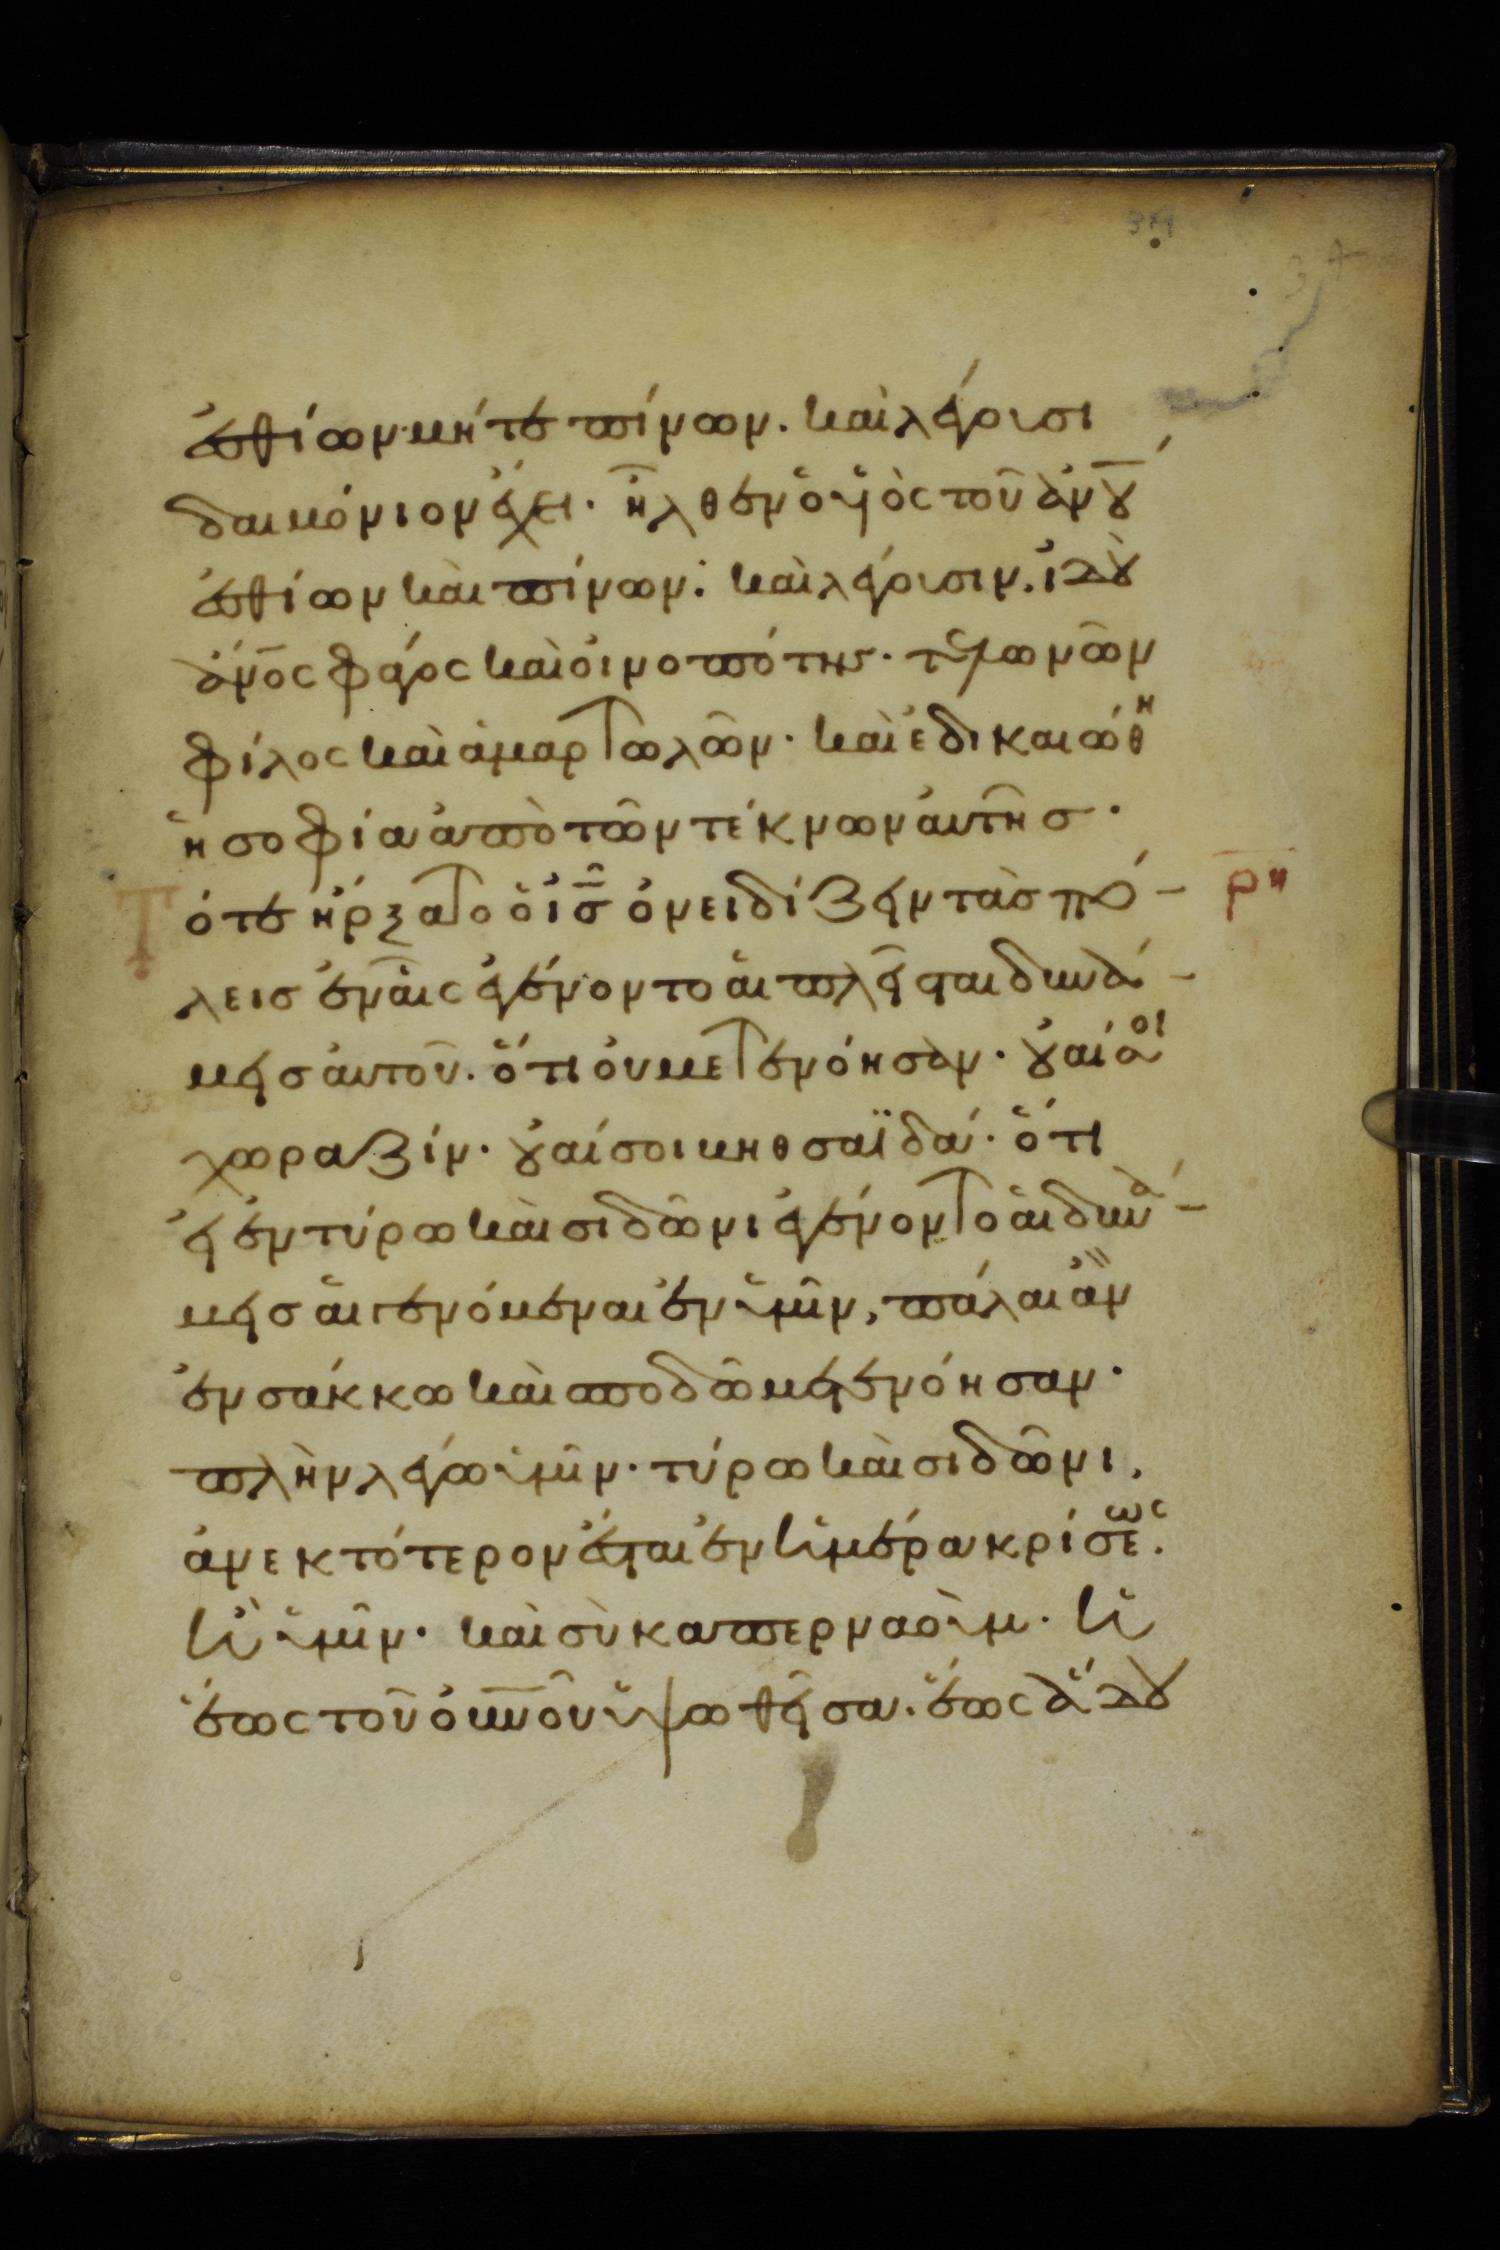 34
34
ἐσθίων μήτε πίνων. καὶ λέγουσι
δαιμόνιον ἔχει. ἦλθεν ὁ υἱὸς τοῦ ἀν̅ου
ἐσθίων καὶ πίνων· καὶ λέγουσιν. ἰδοὺ
ἄν̅ος φάγος καὶ οἰνοπότης. τελωνῶν
φίλος καὶ ἁμαρτωλῶν. καὶ ἐδικαιώθη
ἡ σοφία ἀπὸ τῶν τέκνων αὐτῆσ.
Τότε ἤρξατο ὁ ἰ̅σ̅ ὀνειδίζειν τὰσ πό-
ρη
λεισ ἐν αἷς ἐγένοντο αἱ πλεῖσται δυνά-
μεισ αὐτοῦ. ὅτι οὐ μετενόησαν. οὐαί σοι
χωραζίν. οὐαί σοι βηθσαϊδά. ὅτι
εἰ ἐν τύρω καὶ σιδῶνι ἐγένοντο αἱ δυνά-
μεισ αἱ γενόμεναι ἐν ὑμῖν, πάλαι ἂν
ἐν σάκκω καὶ σποδῶ μετενόησαν.
πλὴν λέγω ὑμῖν. τύρω καὶ σιδῶνι,
ἀνεκτότερον ἔσται ἐν ἡμέρα κρίσεως.
ἢ ὑμῖν. καὶ σὺ καπερναούμ. ἡ
ἕως τοῦ οὐ̅νοῦ ὑψωθεῖσα. ἕως ἅδου